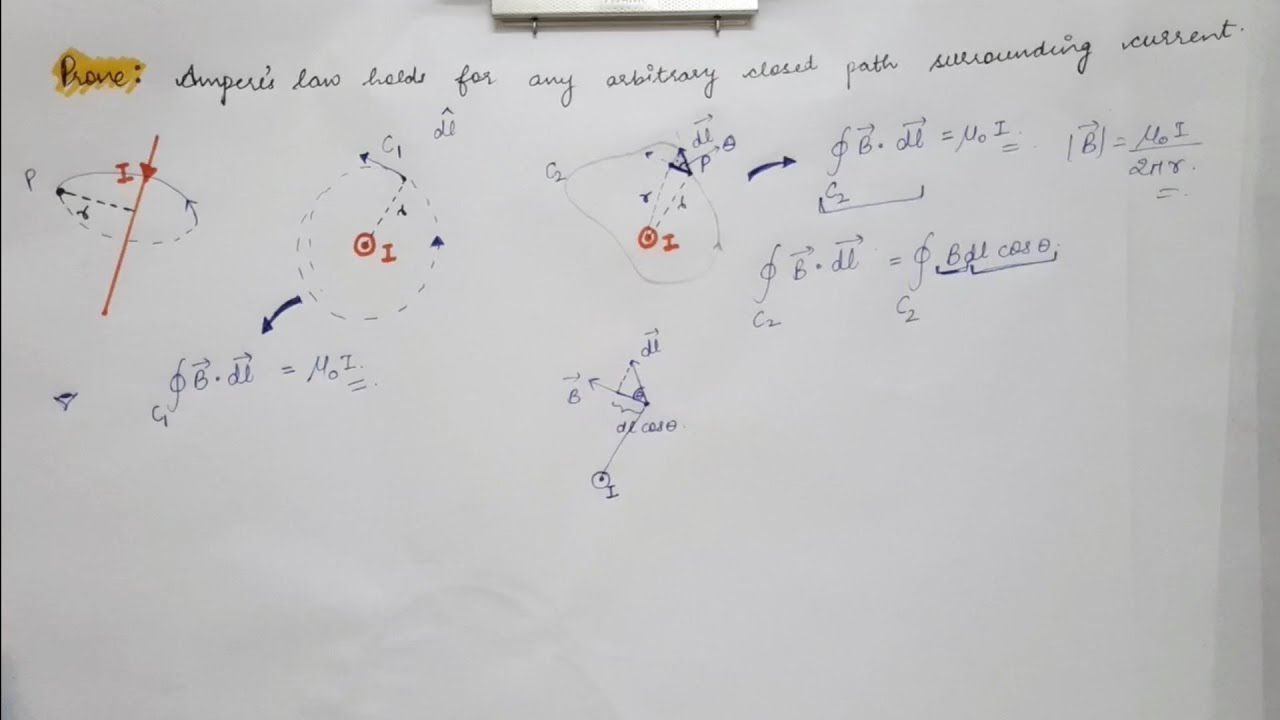 Prove: Ampere's law holds for any arbitrary closed path surrounding current.
P r I
C₁ d̂l r I
C₂ d⃗l θ P r r I
∮_C₂ B⃗ · d⃗l = μ₀I. |B⃗| = μ₀I / 2πr.
∮_C₂ B⃗ · d⃗l = ∮_C₂ B dl cos θ.
∮_C₁ B⃗ · d⃗l = μ₀I.
d⃗l
B⃗ θ
dl cos θ.
I